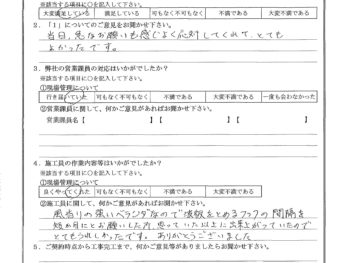 ※該当する項目に○を記入して下さい。
大変満足している 満足している 可もなく不可もなく 不満である 大変不満である
2．「1」についてのご意見をお聞かせ下さい。
当日、急なお願いも感じよく応対してくれて、とても
よかったです。
3．弊社の営業課員の対応はいかがでしたか？
※該当する項目に○を記入して下さい。
①現場管理について
行き届いていた 可もなく不可もなく 不満である 大変不満である 一度も会わなかった
②営業課員に関して、何かご意見があればお聞かせ下さい。
営業課員名【 】【 】【 】
4．施工員の作業内容等はいかがでしたか？
※該当する項目に○を記入して下さい。
①現場管理について
良くやってくれた 可もなく不可もなく 不満である 大変不満である
②施工員に関して、何かご意見があればお聞かせ下さい。
風当りの強いベランダなので波板をとめるフックの間隔を
短か目にとお願いした所、思っていた以上に出来上がっていたので
とてもうれしかったです。ありがとうございました
5．ご契約時点から工事完工まで、何かご意見等がありましたらお聞かせ下さい。